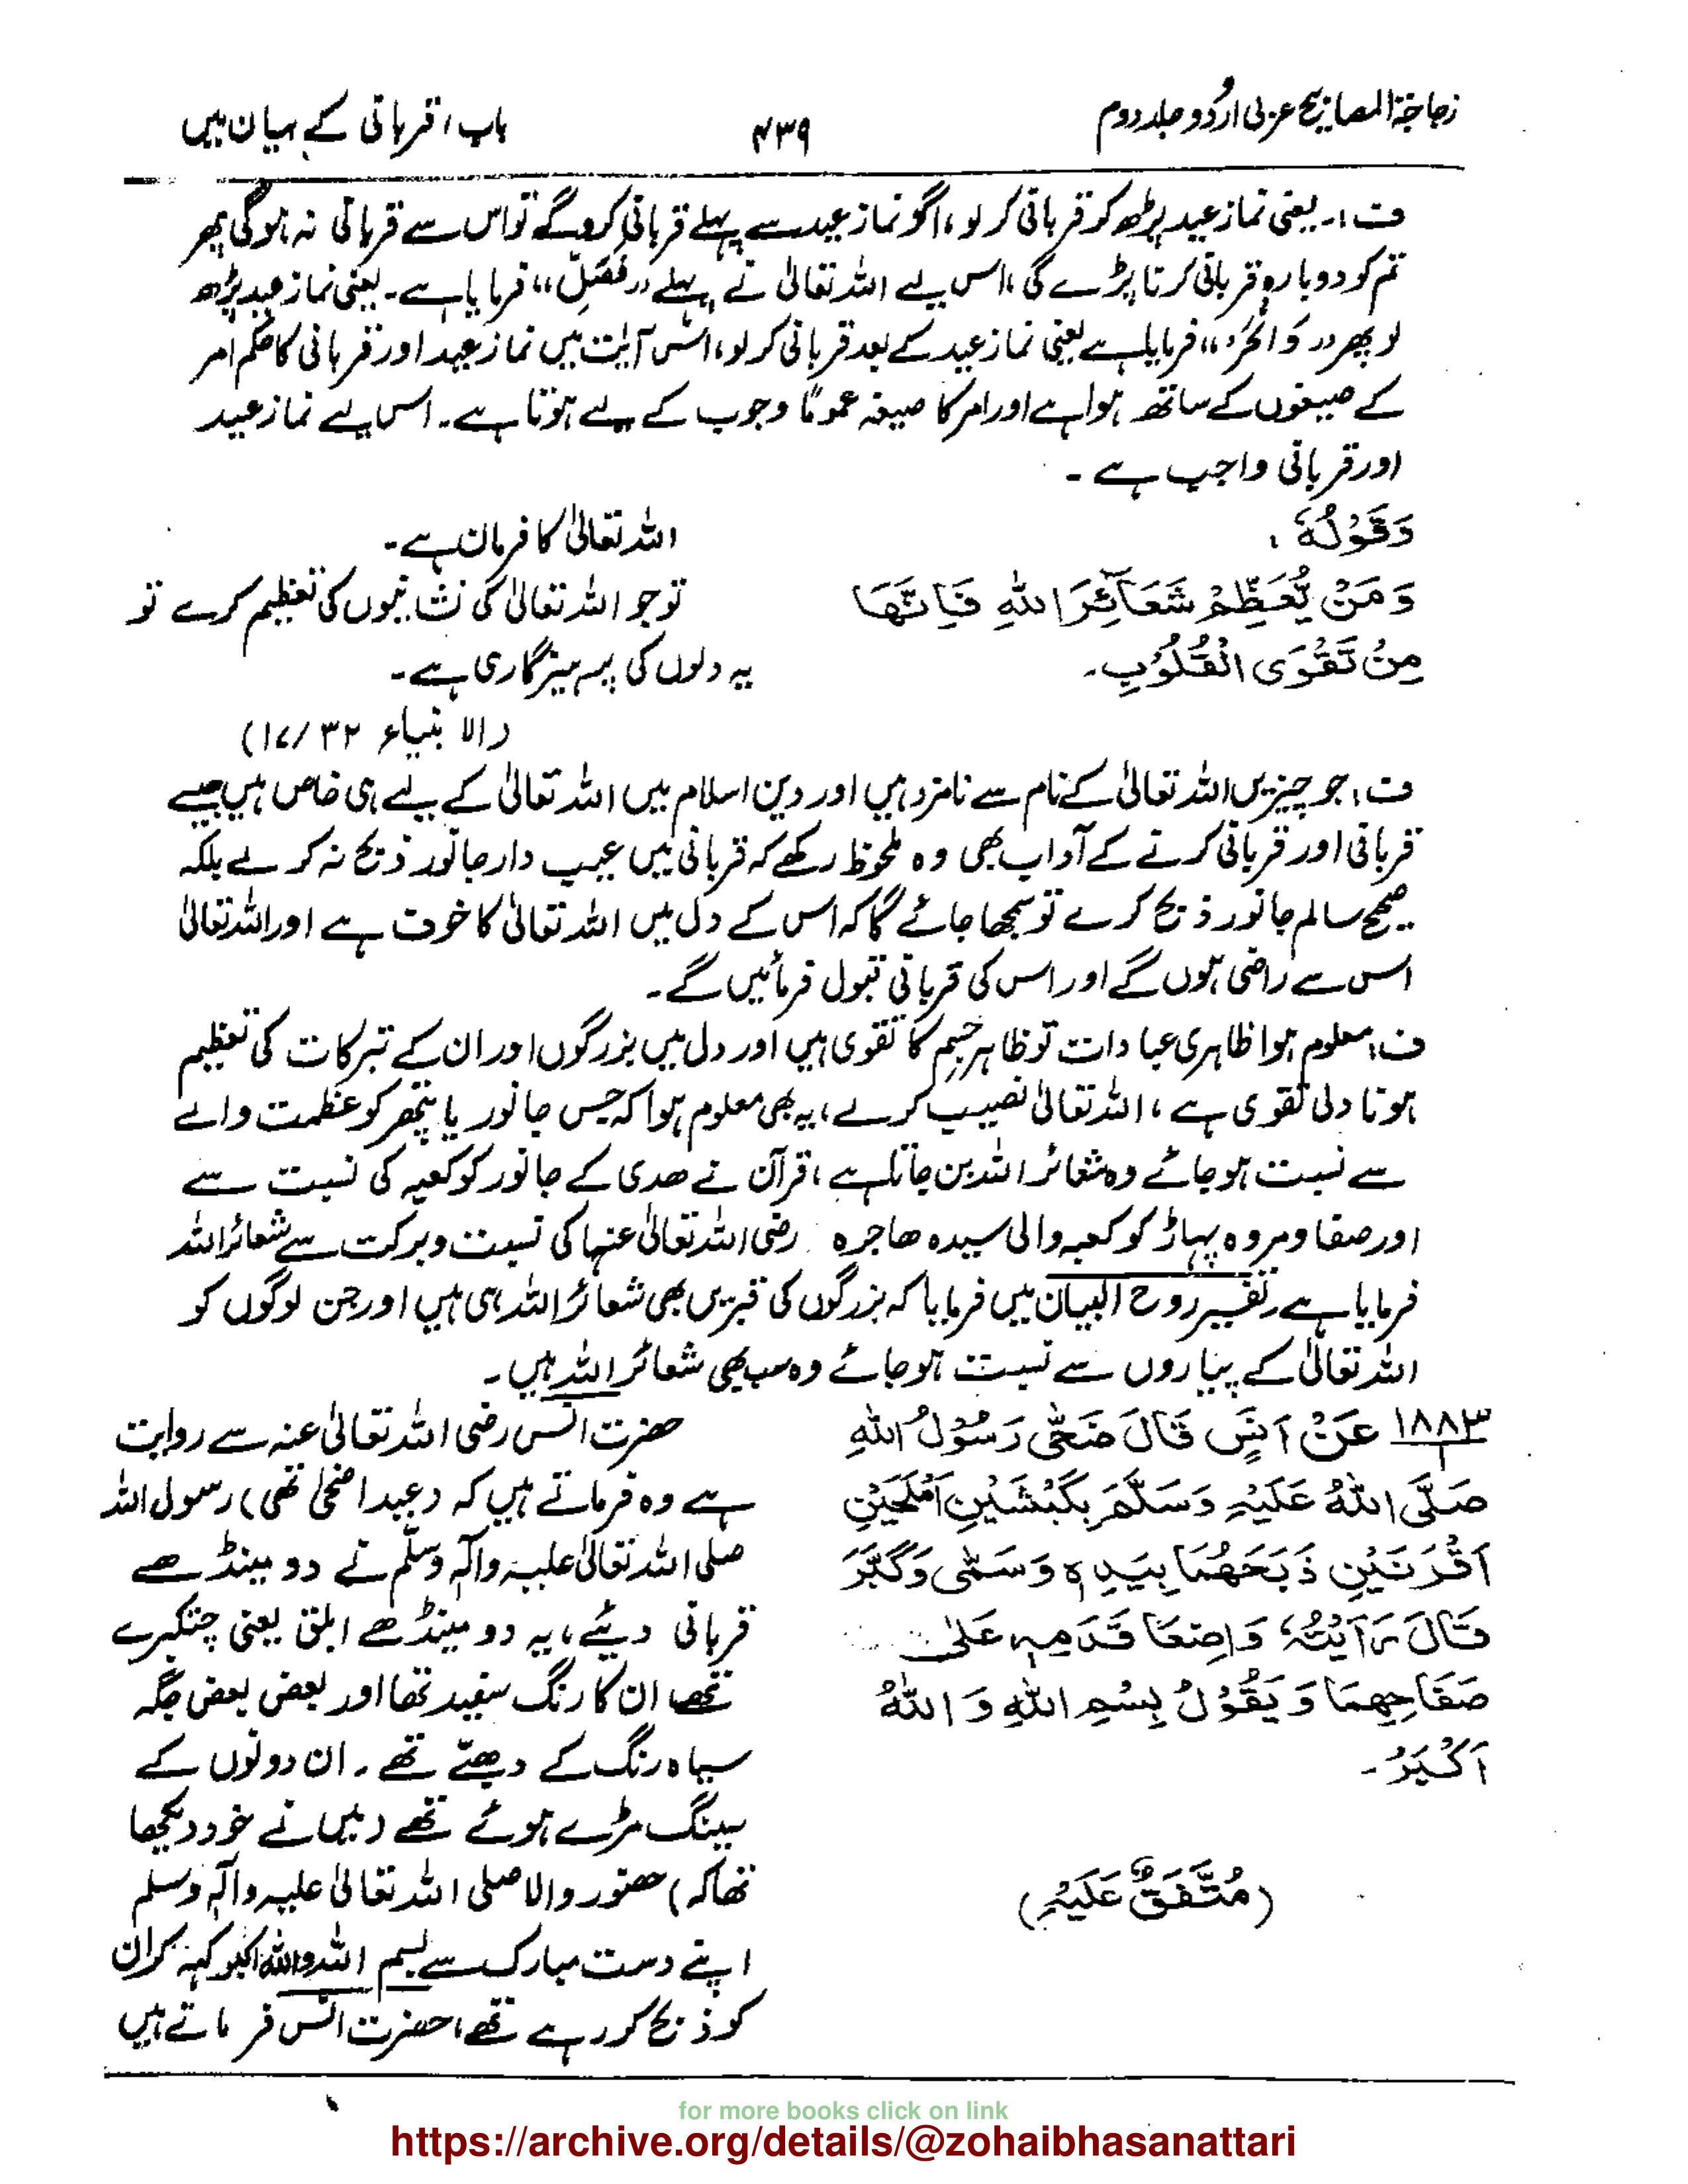 زجاجۃ المصابیح عربی اردو جلد دوم
۴۳۹
باب، قربانی کے بیان میں
ف:۔ یعنی نماز عید پڑھ کو قربانی کر لو، اگو نماز عید سے پہلے قربانی کروگے تو اس سے قربانی نہ ہوگی پھر
تم کو دوبارہ قربانی کرنا پڑے گی، اس لیے اللہ تعالیٰ نے پہلے ”فَصَلِّ“ فرمایا ہے۔ یعنی نماز عید پڑھ
لو پھر ”وَانْحَرْ“ فرمایا ہے یعنی نماز عید کے بعد قربانی کر لو، اس آیت میں نماز عید اور قربانی کا حکم امر
کے صیغوں کے ساتھ ہوا ہے اور امر کا صیغہ عموماً وجوب کے لیے ہوتا ہے۔ اس لیے نماز عید
اور قربانی واجب ہے ۔
وَقَوْلُهٗ،
وَمَنْ يُّعَظِّمْ شَعَآئِرَ اللهِ فَاِنَّهَا
مِنْ تَقْوَى الْقُلُوْبِ۔
اللہ تعالیٰ کا فرمان ہے۔
تو جو اللہ تعالیٰ کی نشانیوں کی تعظیم کرے تو
یہ دلوں کی پرہیزگاری ہے۔
(الانبیاء ۳۲/۱۷)
ف: جو چیزیں اللہ تعالیٰ کے نام سے نامزد ہیں اور دین اسلام میں اللہ تعالیٰ کے لیے ہی خاص ہیں جیسے
قربانی اور قربانی کرنے کے آداب بھی وہ ملحوظ رکھے کہ قربانی میں عیب دار جانور ذبح نہ کرے بلکہ
صحیح سالم جانور ذبح کرے تو سمجھا جائے گا کہ اس کے دل میں اللہ تعالیٰ کا خوف ہے اور اللہ تعالیٰ
اس سے راضی ہوں گے اور اس کی قربانی قبول فرمائیں گے۔
ف: معلوم ہوا ظاہری عبادات تو ظاہر جسم کا تقوی ہیں اور دل میں بزرگوں اور ان کے تبرکات کی تعظیم
ہونا دلی تقوی ہے، اللہ تعالیٰ نصیب کرے، یہ بھی معلوم ہوا کہ جس جانور یا پتھر کو عظمت والے
سے نسبت ہو جائے وہ شعائر اللہ بن جاتا ہے، قرآن نے ھدی کے جانور کو کعبہ کی نسبت سے
اور صفا و مروہ پہاڑ کو کعبہ والی سیدہ ھاجرہ رضی اللہ تعالیٰ عنہا کی نسبت و برکت سے شعائر اللہ
فرمایا ہے۔ تفسیر روح البیان میں فرمایا کہ بزرگوں کی قبریں بھی شعائر اللہ ہی ہیں اور جن لوگوں کو
اللہ تعالیٰ کے پیاروں سے نسبت ہو جائے وہ سب بھی شعائر اللہ ہیں ۔
۱۸۸۳ عَنْ اَنَسٍ قَالَ ضَحّٰى رَسُوْلُ اللهِ
صَلَّى اللهُ عَلَيْهِ وَسَلَّمَ بِكَبْشَيْنِ اَمْلَحَيْنِ
اَقْرَنَيْنِ ذَبَحَهُمَا بِيَدِهٖ وَسَمّٰى وَكَبَّرَ
قَالَ رَاَيْتُهٗ وَاضِعًا قَدَمِهٖ عَلٰى
صَفَاحِهِمَا وَيَقُوْلُ بِسْمِ اللهِ وَاللهُ
اَكْبَرُ ۔
(مُتَّفَقٌ عَلَيْهِ)
حضرت انس رضی اللہ تعالیٰ عنہ سے روایت
ہے وہ فرماتے ہیں کہ (عید اضحیٰ تھی) رسول اللہ
صلی اللہ تعالیٰ علیہ وآلہٖ وسلّم نے دو مینڈھے
قربانی دیئے، یہ دو مینڈھے ابلق یعنی چتکبرے
تھے ان کا رنگ سفید تھا اور بعض بعض جگہ
سیاہ رنگ کے دھبّے تھے ۔ ان دونوں کے
سینگ مڑے ہوئے تھے (میں نے خود دیکھا
تھا کہ) حضور والا صلی اللہ تعالیٰ علیہ وآلہٖ وسلم
اپنے دست مبارک سے بسم اللہ واللہ اکبر کہہ کر ان
کو ذبح کر رہے تھے، حضرت انس فرماتے ہیں
for more books click on link
https://archive.org/details/@zohaibhasanattari